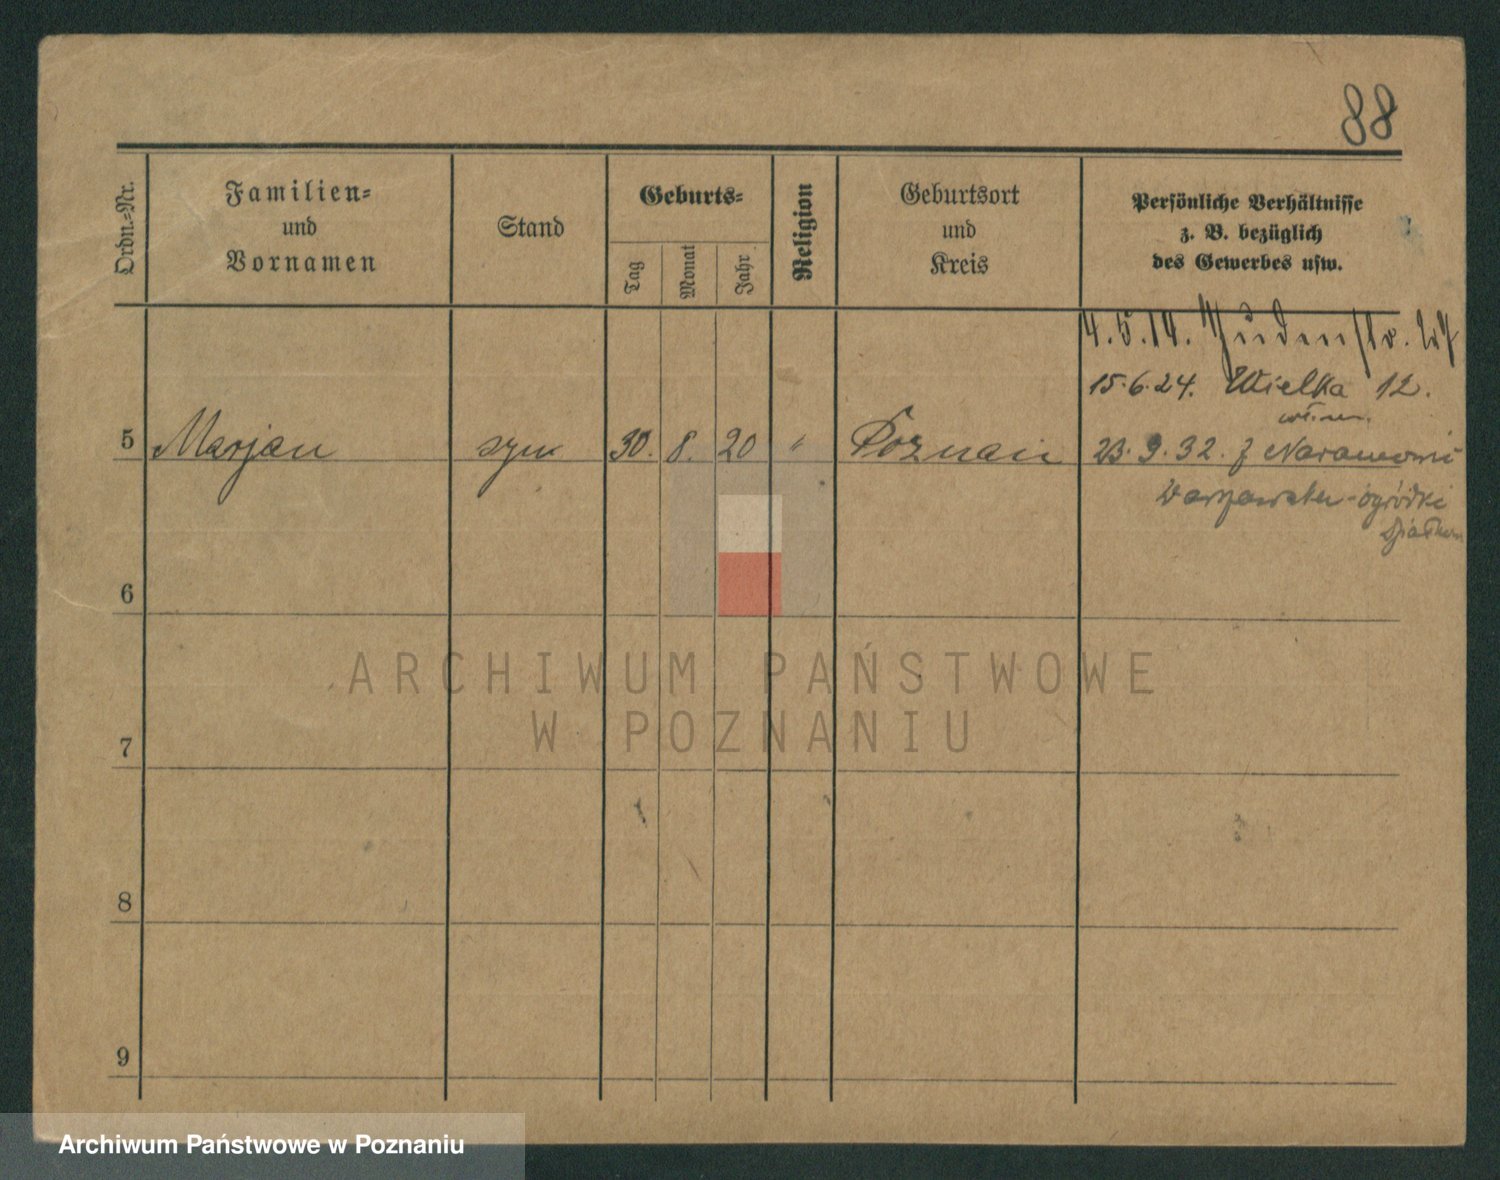 88
Ordn.=Nr.
Familien=
und
Vornamen
Stand
Geburts=
Tag
Monat
Jahr
Religion
Geburtsort
und
Kreis
Persönliche Verhältnisse
z. B. bezüglich
des Gewerbes usw.
4.5.14. Judenstr.
15.6.24. Wielka 12.
5 Marjan syn 30. 8. 20 " Poznań 23.9.32. z Naramowic
Warszawska - ogródki
6
7
8
9
ARCHIWUM PAŃSTWOWE
W POZNANIU
Archiwum Państwowe w Poznaniu